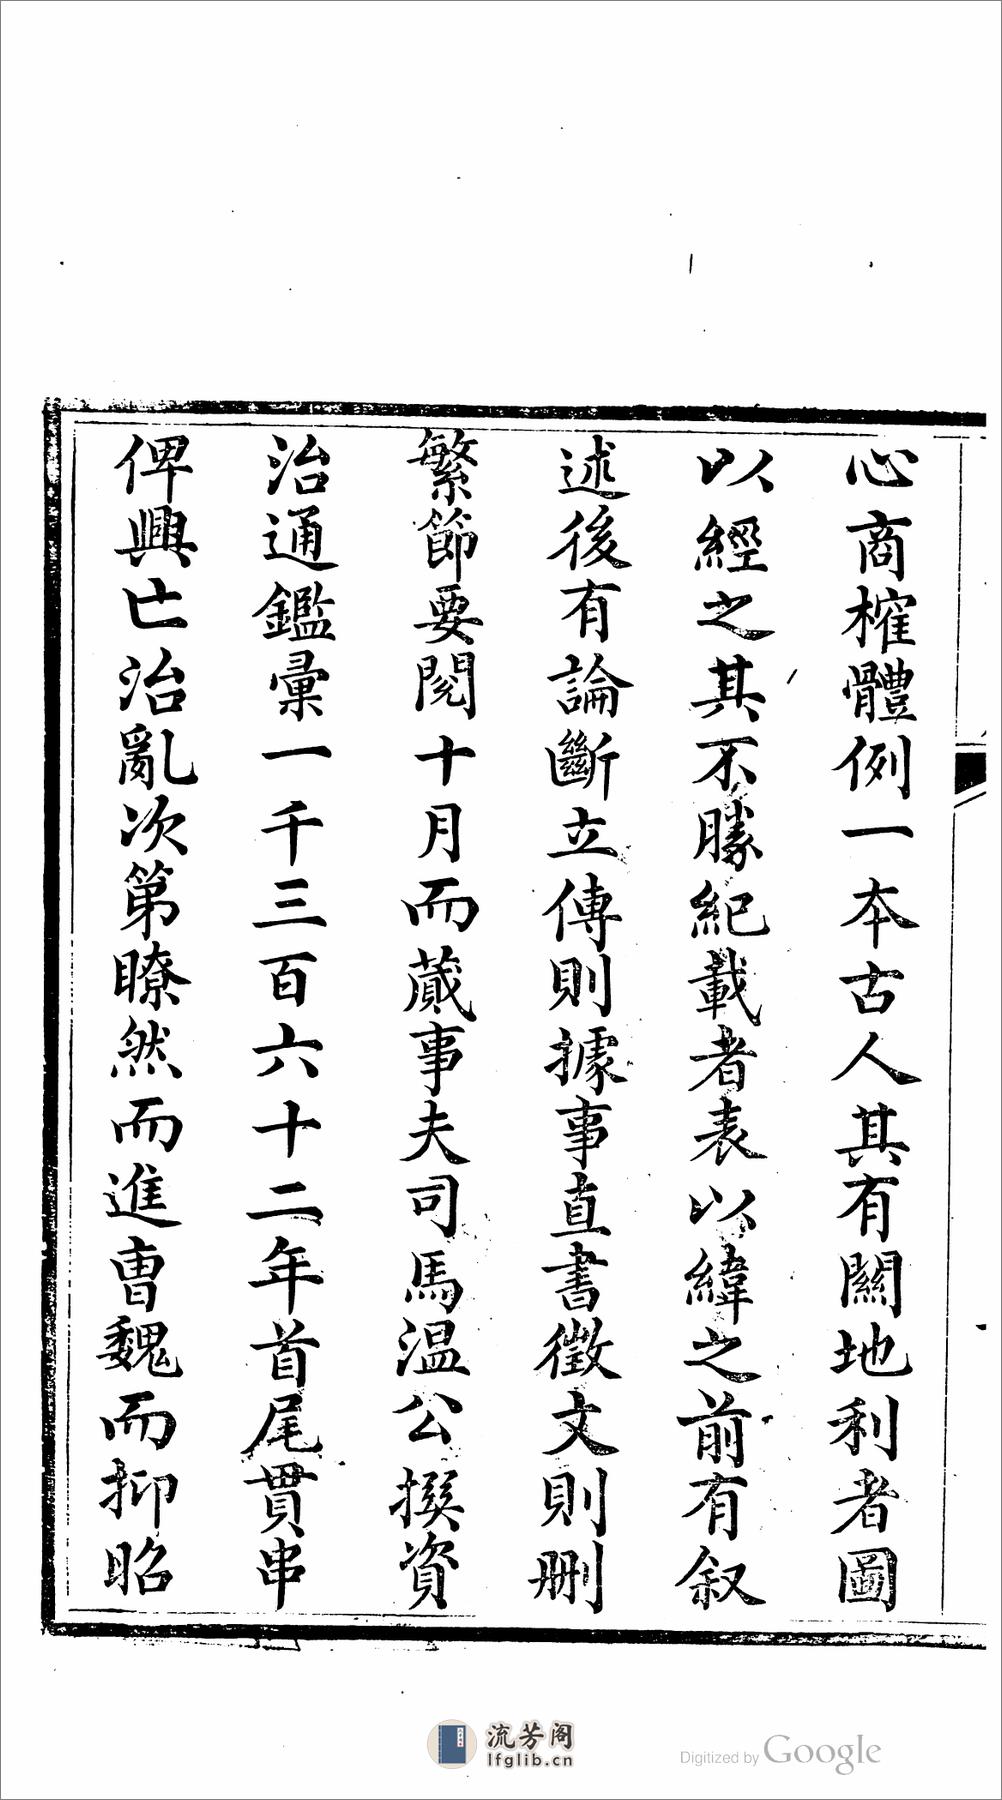 心商榷體例一本古人其有關地利者圖
以經之其不勝紀載者表以緯之前有叙
述後有論斷立傳則據事直書徵文則删
繁節要閱十月而蕆事夫司馬温公撰資
治通鑑彙一千三百六十二年首尾貫串
俾興亡治亂次第瞭然而進曹魏而抑昭
流芳阁
lfglib.cn
Digitized by Google